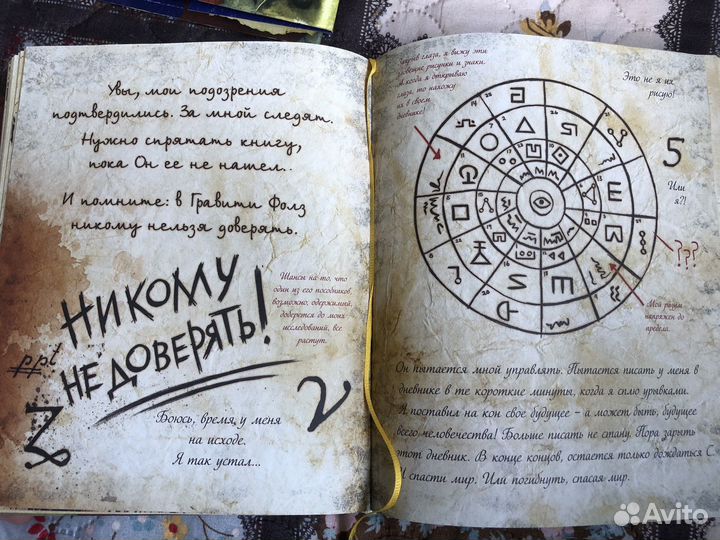 Увы, мои подозрения
подтвердились. За мной следят.
Нужно спрятать книгу,
пока Он ее не нашел..
И помните: в Гравити Фолз
никому нельзя доверять.
НИКОМУ
НЕ ДОВЕРЯТЬ!
Шансы на то, что
один из его пособников,
возможно, одержимый,
доберется до моих
исследований, все
растут.
ppt
2
Боюсь, время у меня
на исходе.
Я так устал...
глаза, я вижу эти
рисунки и знаки.
когда я открываю
глаза, то нахожу
их в своем
дневнике!
Это не я их
рисую!
5
Или
я?!
???
Мой разум
напряжен до
предела.
Он пытается мной управлять. Пытается писать у меня в
дневнике в те короткие минуты, когда я сплю урывками.
Я поставил на кон свое будущее – а может быть, будущее
всего человечества! Больше писать не стану. Пора зарыть
этот дневник. (В конце концов, остается только дождаться С
и спасти мир. Или погибнуть, спасая мир.
Avito